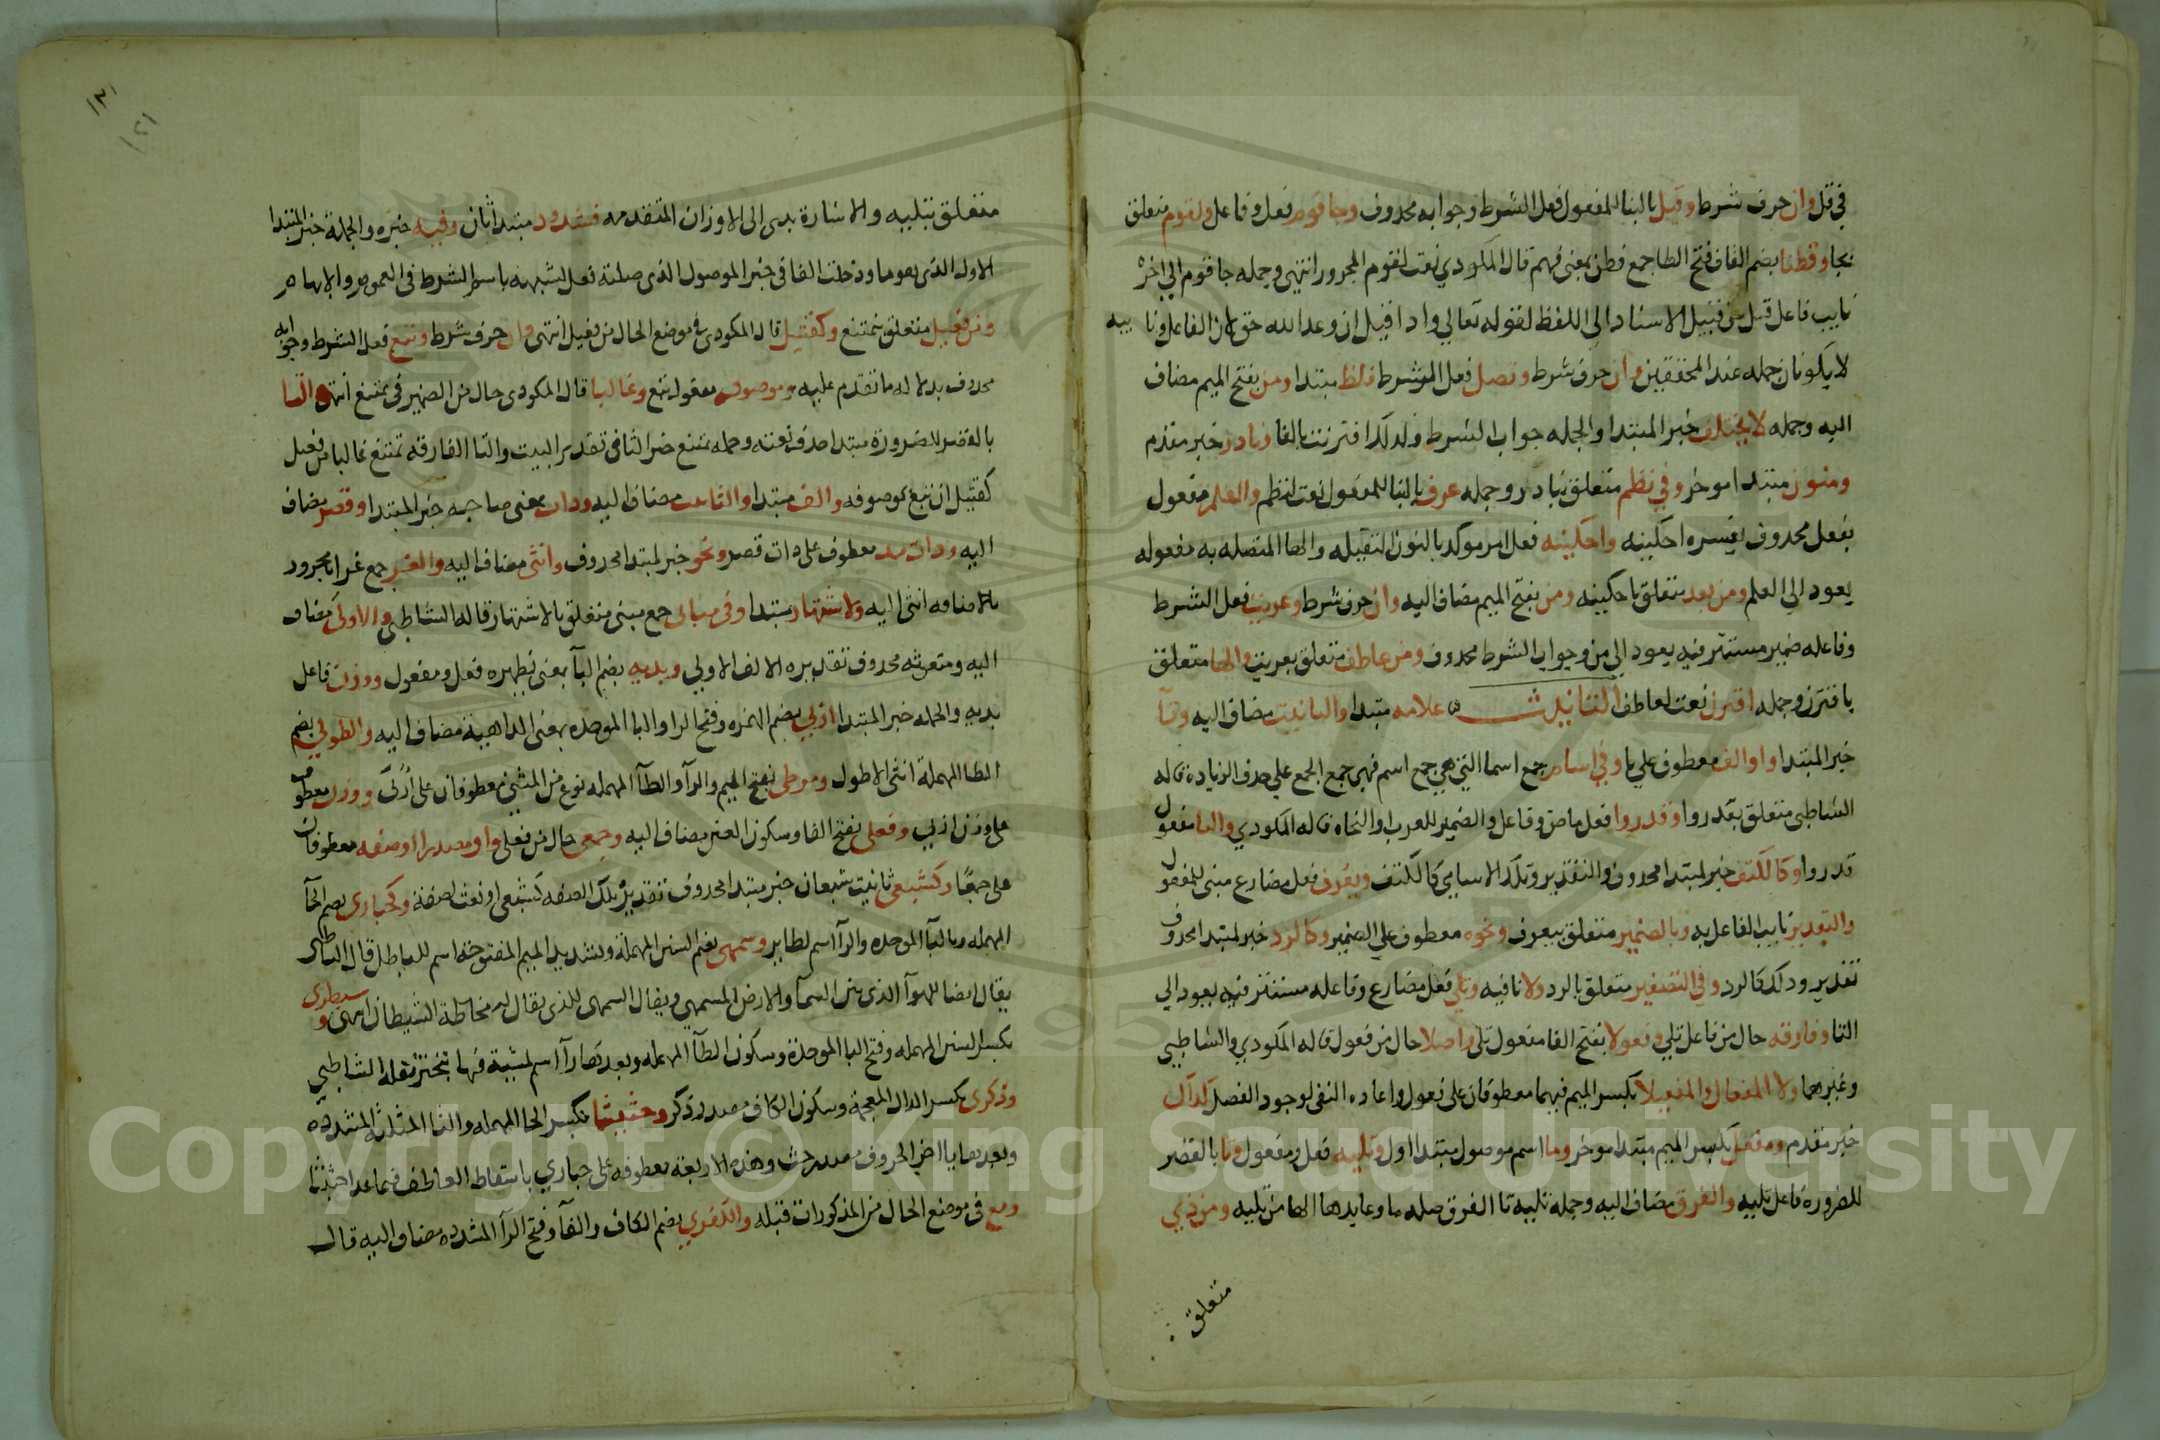 في قل وان حرف شرط وقيل بالبنا للمفعول فعل الشرط وجوابه محذوف وجا قوم فعل وفاعل ولقوم متعلق
بجا وفطنا بضم الفاف فتح الطا جمع فطن بمعنى فهم قال المكودي نعت لقوم المجرور انتهى وجمله جا قوم الي اخره
نايب فاعل قيل من قبيل الاسناد الي اللفظ لقوله تعالي واذا قيل ان وعد الله حق لان الفاعل ونا يبه
لا يكونان جمله عند المحققين وان حرف شرط وتصل فعل الشرط فلفظ مبتدا ومن بفتح الميم مضاف
اليه وجمله لا يختلف خبر المبتدا والجمله جواب الشرط ولذلك اقترنت بالفا ونادر خبر مقدم
ومنون مبتدا موخر وفي نظم متعلق بنادر وجمله عرف بالبنا للمفعول نعت لنظم والعلم مفعول
بفعل محذوف يفسره احكينه واحكينه فعل امر موكد بالنون الثقيله والها المتصله به مفعوله
يعود الي العلم ومن بعد متعلق باحكينه ومن بفتح الميم مضاف اليه وان حرف شرط وعريت فعل الشرط
وفاعله ضمير مستتر فيه يعود الي من وجواب الشرط محذوف ومن عاطف متعلق بعريت وبها متعلق
باقترن وجمله اقترن نعت لعاطف التانيث علامه مبتدا والتانيث مضاف اليه وتا
خبر المبتدا او الف معطوف علي تا وفي اسام جمع اسما التي هي جمع اسم فهي جمع الجمع علي حذف الزياده قاله
الشاطبي متعلق بقدروا وقدروا فعل ماض وفاعل والضمير للعرب او النحاه قاله المكودي والتا مفعول
قدروا وكالكتف خبر لمبتدا محذوف والتقدير وتلك الاسامي كالكتف ويعرف فعل مضارع مبني للمفعول
والتقدير نايب الفاعل به وبالضمير متعلق بيعرف ونحوه معطوف علي الضمير وكالرد خبر لمبتدا محذوف
تقديره وذلك كالرد وفي التصغير متعلق بالرد ولا نافيه وتلي فعل مضارع وفاعله مستتر فيه يعود الي
التا وفارقه حال من فاعل تلي وفعولا بفتح الفا مفعول تلي واصلا حال من فعول قاله المكودي والشاطبي
وغيرهما ولا المفعال والمفعيلا بكسر الميم فيهما معطوفان على فعول واعاده النفي لوجود الفصل كذاك
خبر مقدم ومفعل بكسر الميم مبتدا موخر وما اسم موصول مبتدا اول وتليه فعل ومفعول وتا بالقصر
للضروره فاعل تليه والفرق مضاف اليه وجمله تليه تا الفرق صله ما وعايدها الها من تليه ومن ذي
متعلق
١٣١
١٢١
متعلق بتليه والاشارة بدي الى الاوزان المتقدمه فشذوذ مبتدا ثان وفيه خبره والجملة خبر المبتدا
الاول الذي هو ما ودخلت الفا في خبر الموصول الذي صلته فعل لشبهه باسم الشرط في العموم والابهام
ومن فعيل متعلق بتمتنع وكقتيل قال المكودي في موضع الحال من فعيل انتهى وان حرف شرط وتبع فعل الشرط وجوابه
محذوف بدلاله ما تقدم عليه وموصوفه مفعول تبع وغالبا قال المكودي حال من الضمير في تمتنع انتهى والتا
بالقصر للضرورة مبتدا حذف نعته وجمله تمتنع خبر التا في تقدير البيت والتا الفارقه تمتنع غالبا من فعيل
كقتيل ان تبع موصوفه والف مبتدا والتانيث مضاف اليه وذات بمعنى صاحبه خبر المبتدا وقصر مضاف
اليه وذات مد معطوف على ذات قصر ونحو خبر لمبتدا محذوف وانثى مضاف اليه والغر جمع غرا مجرور
بالاضافه انثى اليه والاشتهار مبتدا وفي مباني جمع مبنى متعلق بالاشتهار قاله الشاطبي والاولى مضاف
اليه ومنعوته محذوف تقديره الالف الاولي ويبديه بضم اليآ بمعنى يظهره فعل ومفعول ووزن فاعل
يبديه والجمله خبر المبتدا اربي بضم الهمزه وفتح الرا والبا الموحده بمعنى الداهية مضاف اليه والطولي بضم
الطا المهملة انثى الاطول ومرطى بفتح الميم والرآ والطآ المهمله نوع من المشي معطوفان على اربى ووزن معطوف
على وزن اربي وفعلى بفتح الفا وسكون العين مضاف اليه وجمعى حال من فعلى او مصدرا او صفه معطوفان
على جمعًا وكشبعى تانيث شبعان خبر مبتدا محذوف تقديره تلك الصفه كشبعى او نعت لصفة وكحبارى بضم الحآ
المهمله وبالبآ الموحده والرآ اسم لطاير وسمهى بضم السين المهملة وتشديد الميم المفتوحة اسم للباطل قال الشاطبي
يقال ايضا للهوآ الذي بين السمآ والارض السمهي ويقال السمهى للذي يقال له مخاطة الشيطان انتهى وسبطرى
بكسر السين المهمله وفتح البا الموحدة وسكون الطآ المهمله وبعدها رآ اسم لمشية فيها تبختر نقله الشاطبي
وذكرى بكسر الذال المعجمة وسكون الكاف مصدر ذكر وحثيثى بكسر الحا المهمله والثا المثلثه المشدده
وبعدها يا اخر الحروف مصدر حث وهذه الاربعة معطوفه على حباري باسقاط العاطف فيما عدا حثيثى
ومع في موضع الحال من المذكورات قبله والكفري بضم الكاف والفآ وفتح الرآ المشدده مضاف اليه قال